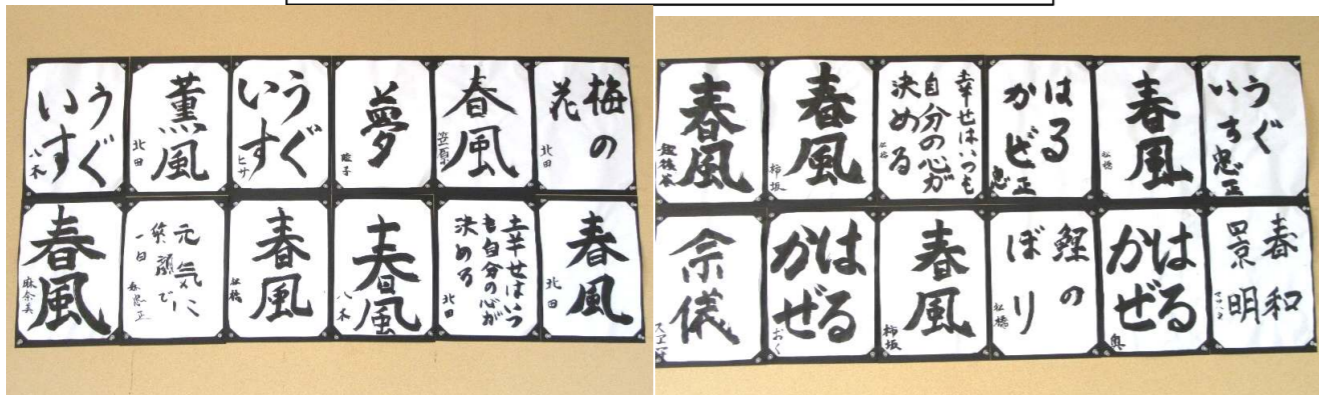 うぐ
いす
八木
薫風
北田
うぐ
いす
ヒサ
夢
睦子
春風
笠原
梅の
花
北田
春風
麻奈美
元気に
笑顔で
一日
春風
松橋
春風
八木
幸せはいつ
も自分の心が
決める
北田
春風
北田
春風
越後谷
春風
柿坂
幸せはいつも
自分の心が
決める
松橋
はる
かぜ
忠正
春風
松橋
うぐ
いす
忠正
はる
かぜ
おく
春風
柿坂
鯉の
ぼり
松橋
はる
かぜ
奥
春和
景明